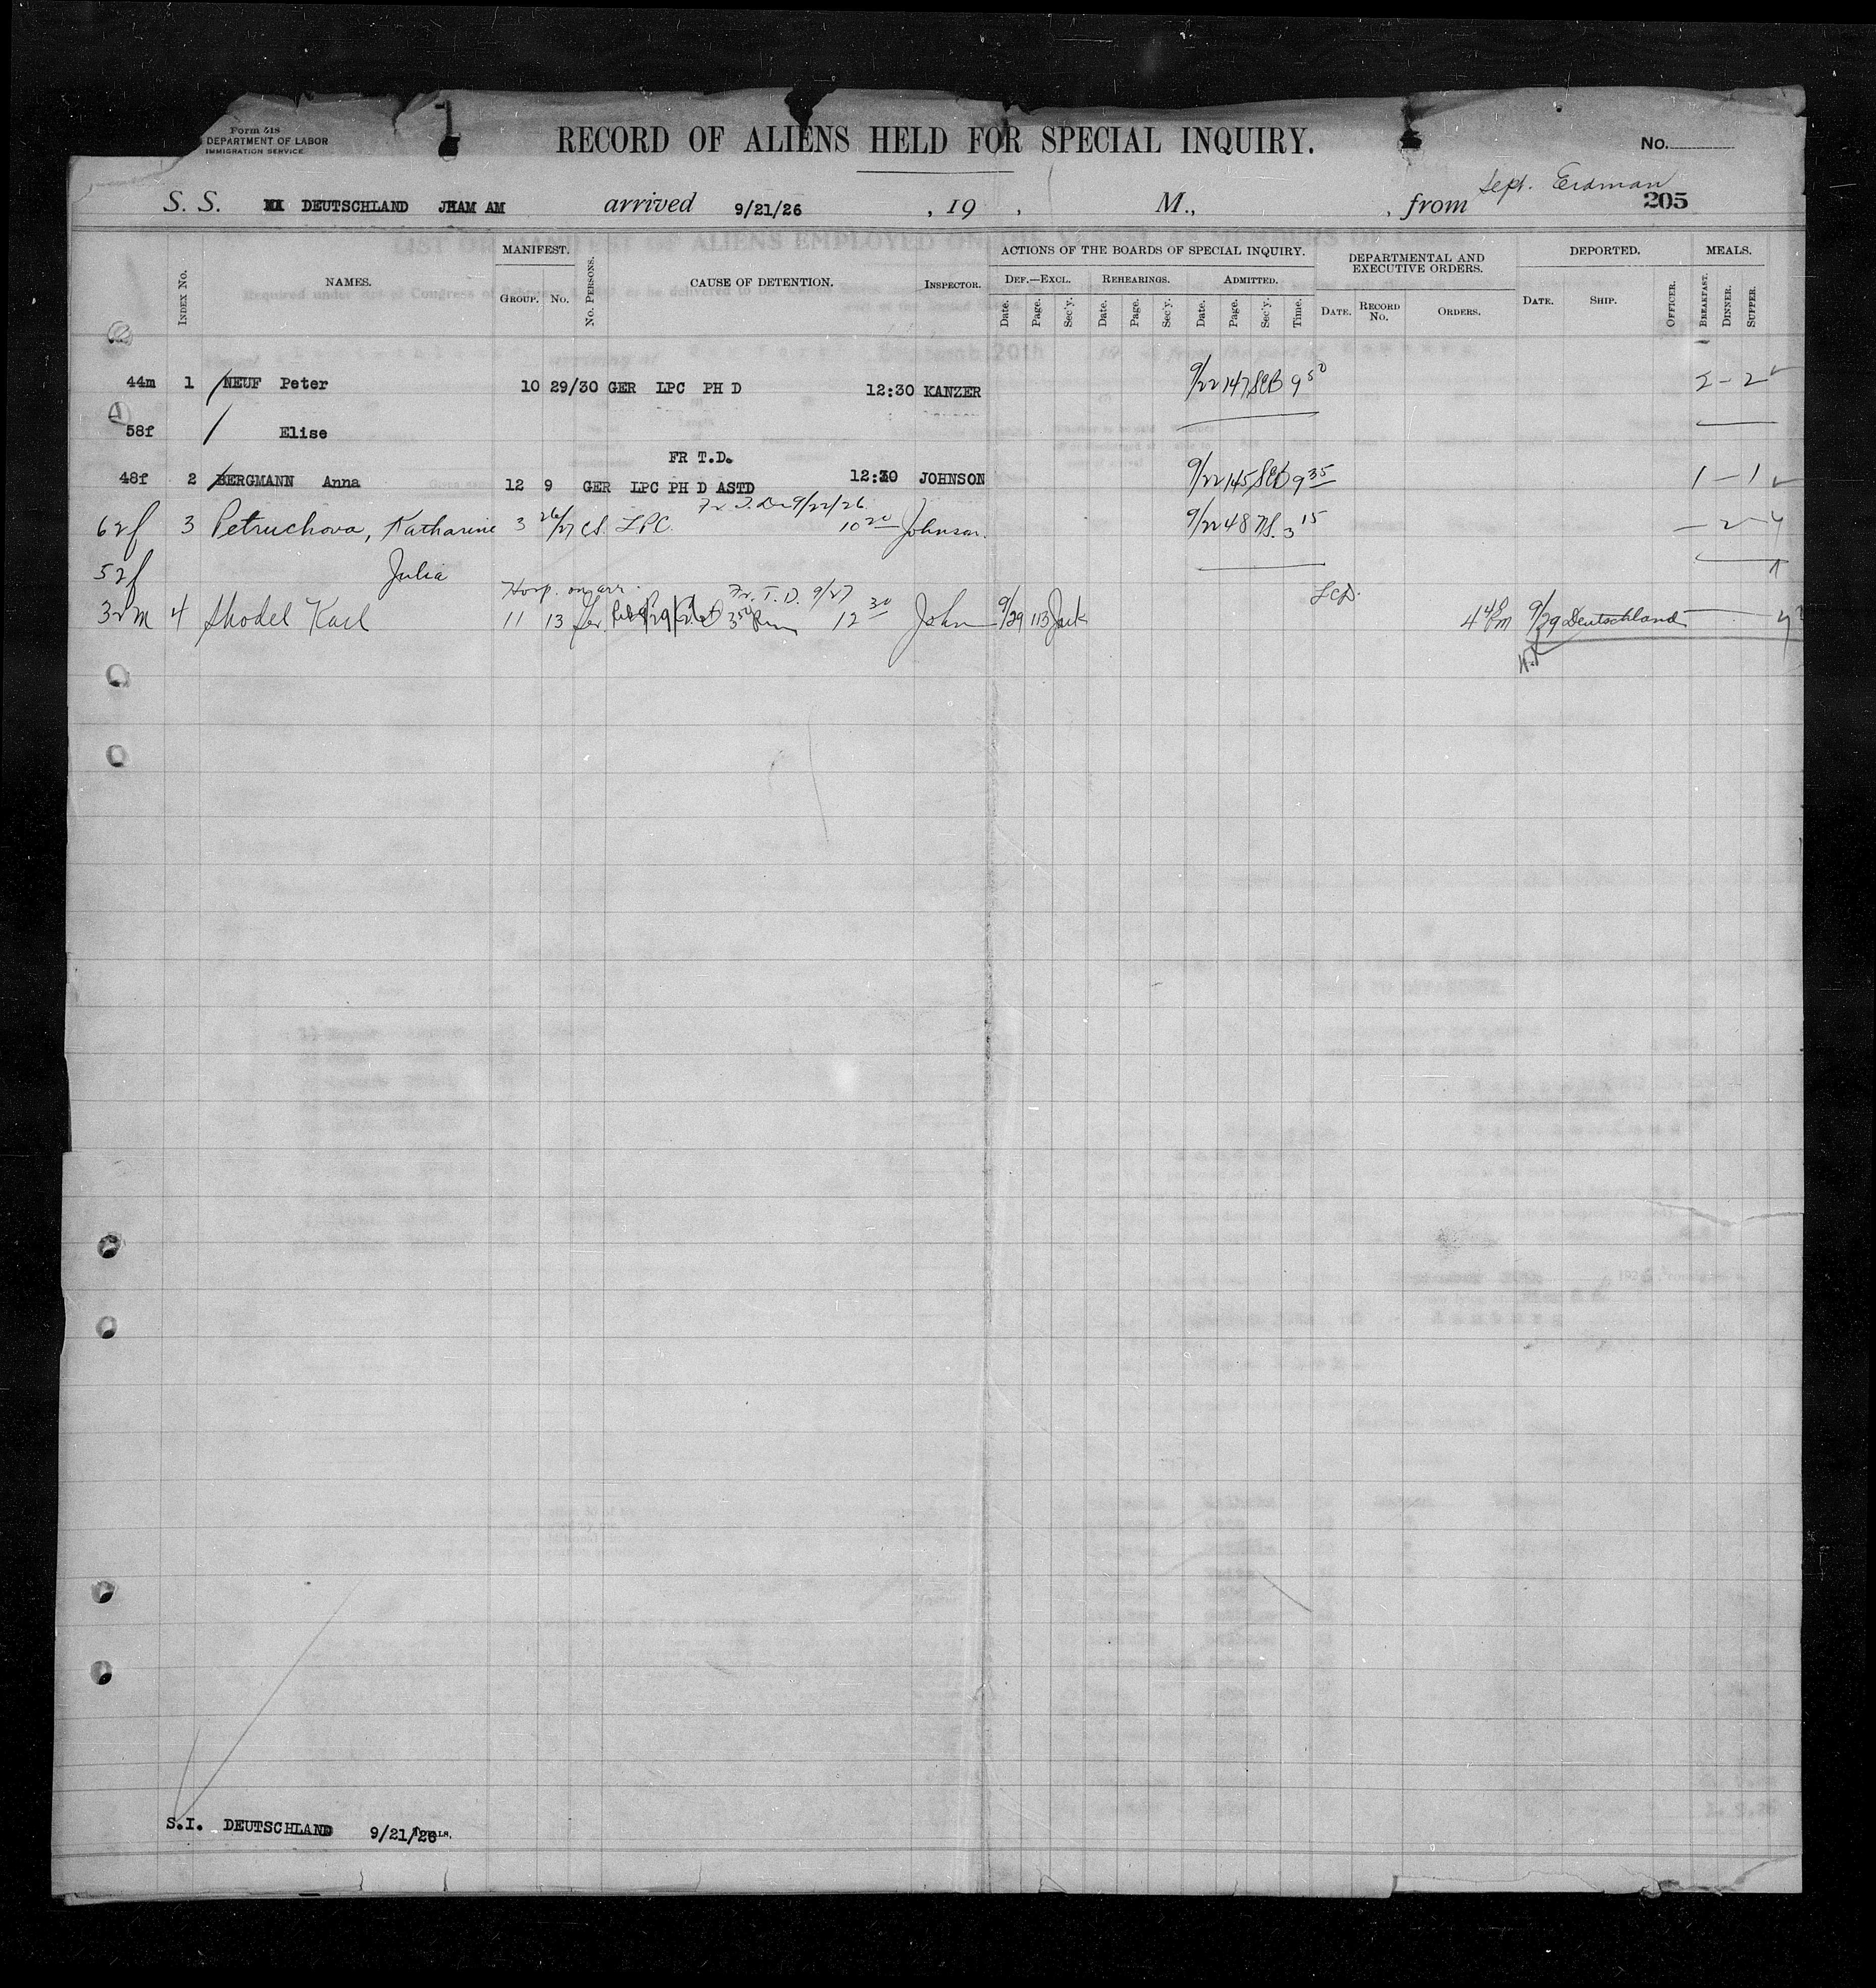 Form 518
DEPARTMENT OF LABOR
IMMIGRATION SERVICE
RECORD OF ALIENS HELD FOR SPECIAL INQUIRY.
No.
Sept. Erdman
S. S. DEUTSCHLAND HAM AM arrived 9/21/26 , 19 , M., , from 205
INDEX No. NAMES. MANIFEST. GROUP. No. No. PERSONS. CAUSE OF DETENTION. INSPECTOR.
ACTIONS OF THE BOARDS OF SPECIAL INQUIRY. DEF.—EXCL. Date. Page. Sec'y. REHEARINGS. Date. Page. Sec'y. ADMITTED. Date. Page. Sec'y. Time.
DEPARTMENTAL AND EXECUTIVE ORDERS. DATE. RECORD No. ORDERS.
DEPORTED. DATE. SHIP. OFFICER.
MEALS. BREAKFAST. DINNER. SUPPER.
44m 1 NEUF Peter 10 29/30 GER LPC PH D 12:30 KANZER 9/22 147 SCB 9 50 2 - 2
58f Elise
FR T.D.
48f 2 BERGMANN Anna 12 9 GER LPC PH D ASTD 12:30 JOHNSON 9/22 145 SCB 9 35 1 - 1
Fr. T. D. 9/22/26
62f 3 Petruchova, Katharine 3 26/27 LPC. 10 20 Johnson. 9/22 48 3 15 - 2 - 4
52f Julia
Hosp. on arr. Fr. T. D. 9/27
32m 4 Shodel Karl 11 13 Ger. 12 30 John 9/29 113 Jack 4 48 PM 9/29 Deutschland
S.I. DEUTSCHLAND 9/21/26